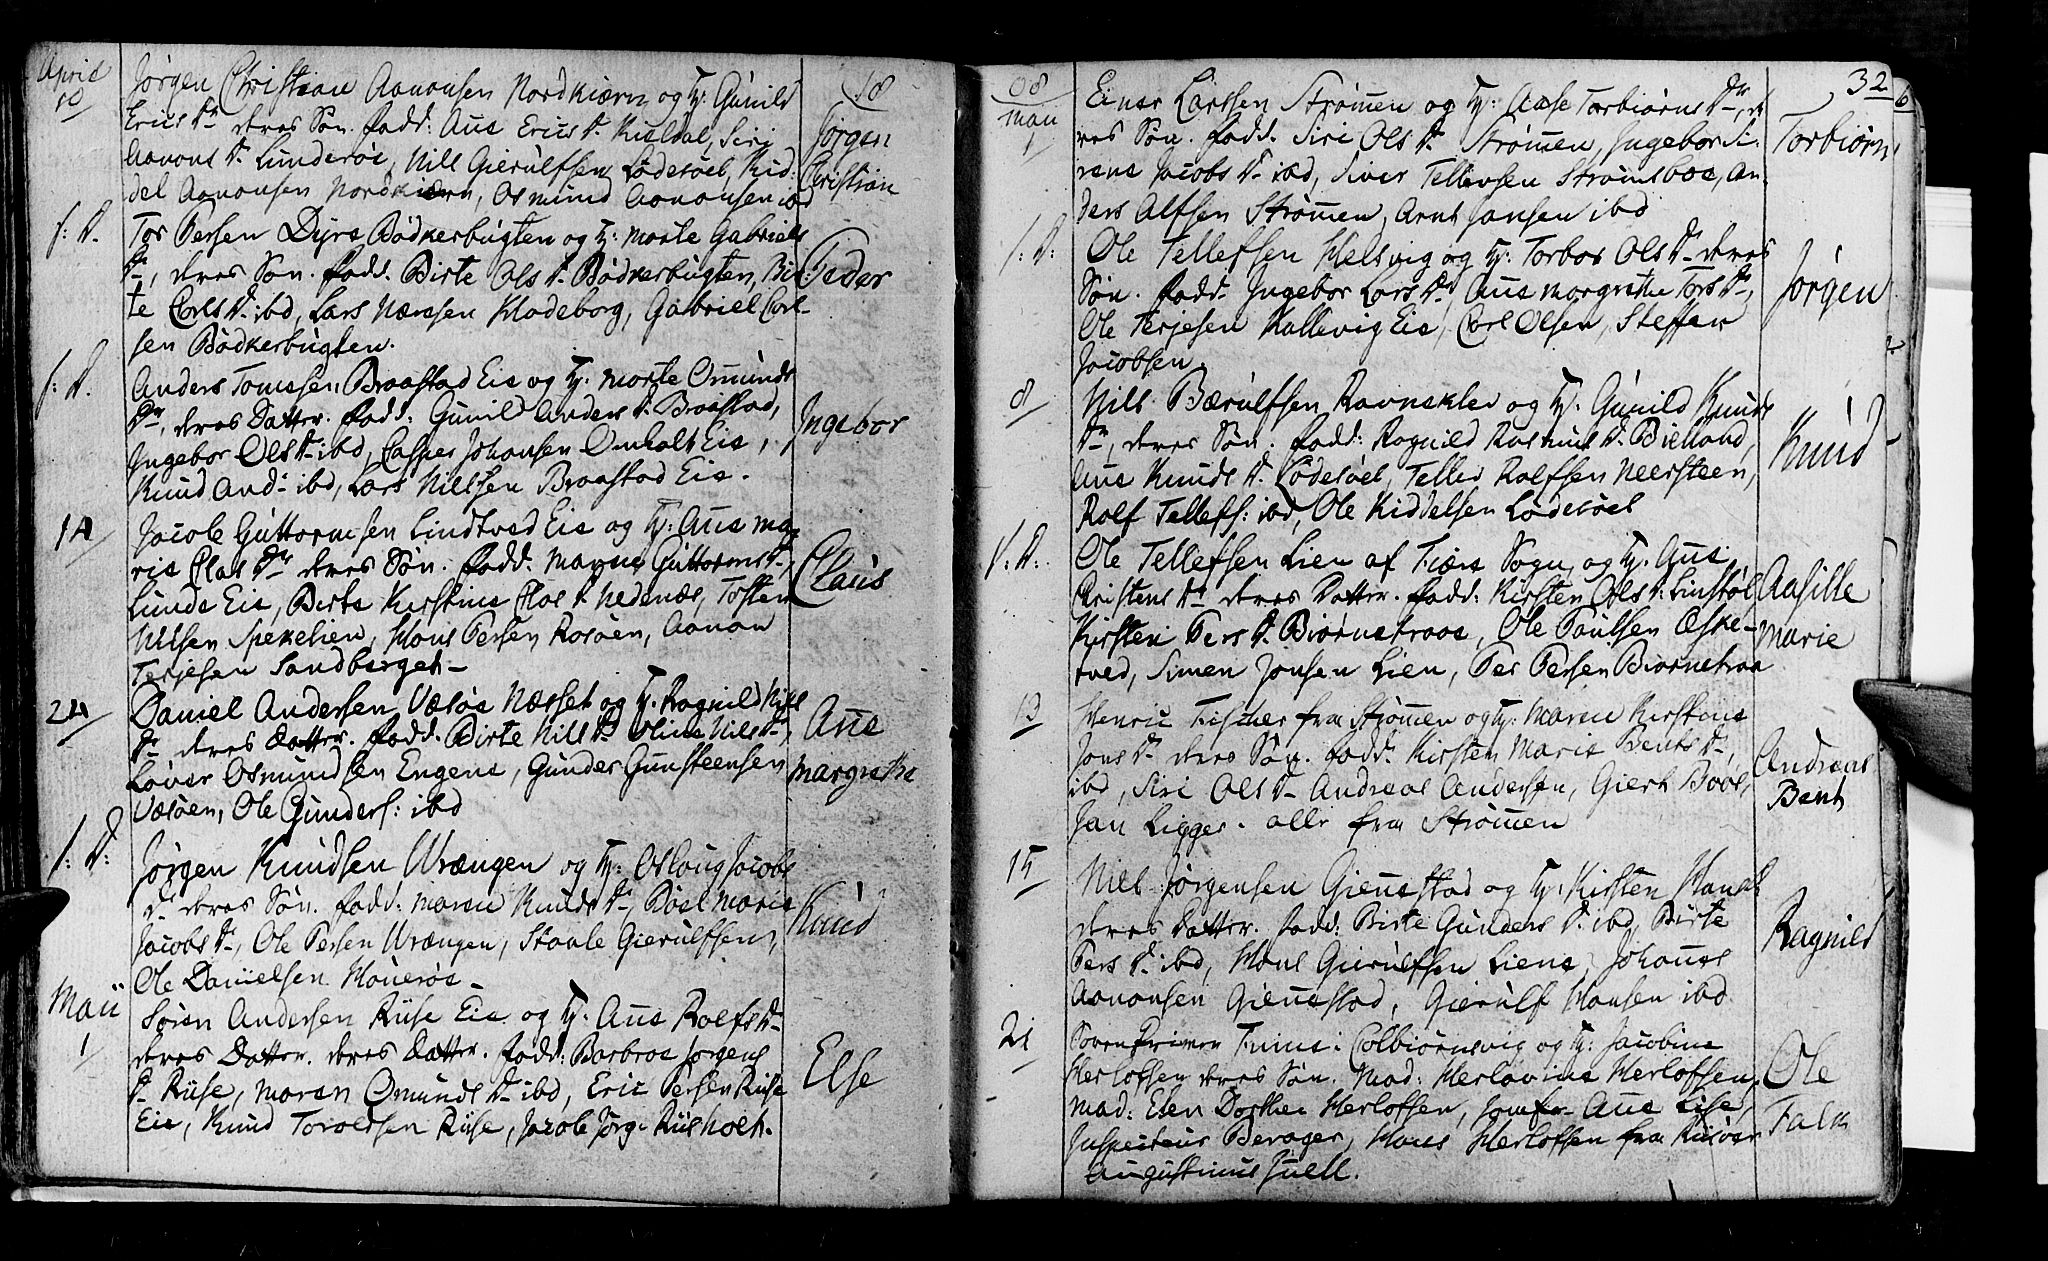 April
10
18
Jørgen Christian Aanonsen Nordkiærn og H: Gunild
Erics Dr deres Søn. fadd: Ane Erics D. Kieldal, Siri
Aanons D. Lunderøe, Nills Gierulfsen Lødesøel, Kid-
del Aanonsen Nordkiærn, Osmund Aanonsen ibd
Jørgen
Christian
s: D.
Tor Persen Dyre Bødkerbugten og H: Marte Gabriels
Dr, deres Søn. fadd. Birte Ols D. Bødkerbugten, Bir-
te Carls D. ibd, Lars Nærsen Kladeborg, Gabriel Carl-
sen Bødkerbugten.
Peder
s: D.
Anders Tomesen Braastad Eie og H: Marte Omunds
Dr, deres Datter. fadd: Gunil Anders D. Braastad,
Ingebor Ols D. ibd, Casper Johansen Omholt Eie,
Knud And: ibd, Lars Nillsen Braastad Eie.
Ingebor
14
Jacob Guttormsen Lindtved Eie og H: Ane Ma-
rie Clas Dr deres Søn. fadd. Maren Guttorms D.
Lunde Eie, Birte Kirstine Clas D. Nedenæs, Tosten
Nilsen Spekelien, Hans Persen Rosøen, Aanon
Terjesen Sandberget
Claus
24
Daniel Andersen Væsøe Næsset og H. Ragnild Nills
Dr deres Datter. fadd. Birte Nills D. Oline Nils D.,
Løver Osmundsen Engene, Gunder Gunsteensen
Væsøen, Ole Gunders: ibd
Ane
Margrethe
s: D:
Jørgen Knudsen Wrængen og H: Oslaug Jacobs
Dr deres Søn. fadd: Maren Knuds D., Boel Marie
Jacobs D., Ole Persen Wrængen, Staale Gierulfsen,
Ole Danielsen Hauerøe
Knud
Maii
1
Søren Andersen Riise Eie og H: Ane Rolfs D.
deres Datter. deres Datter. fadd: Barbroe Jørgens
D. Riise, Maren Omunds D. ibd, Eric Persen Riise
Eie, Knud Torvelsen Riise, Jacob Jørg: Riisholt.
Else
08
Maii
1
32
6
Einer Larssen Strømen og H: Aase Torbiørns Dr, de
res Søn. fadd. Siri Ols D. Strømen, Ingebor Si-
rene Jacobs D. ibd, Siver Tellevsen Strømsboe, An-
ders Alfsen Strømen, Arnt Jansen ibd
Torbiørn
s: D:
Ole Tellefsen Helsvig og H: Torbor Ols D. deres
Søn. fadd. Ingebor Lars D. Ane Margrethe Tors D.,
Ole Terjesen Kallevig Eie, Carl Olsen, Steffen
Jacobsen
Jørgen
8
Nils Bærulfsen Ravneklev og H: Gunild Knuds
Dr, deres Søn. fadd: Ragnild Rasmus D. Bielland,
Ane Knuds D. Lødesøel, Tellev Rolfsen Neersteen,
Rolf Tellefs: ibd, Ole Kiddelsen Lødesøel
Knud
s: D.
Ole Tellefsen Lien af Fiære Sogn og H. Ane
Christens Dr deres Datter. fadd: Kirsten Ols D: Linstøl
Kirsten Pers D. Biørnetraae, Ole Poulsen Æske-
tved, Simen Jonsen Lien, Per Persen Biørnetraa
Aasille
Marie
13
Henric Fischer fra Strømen og H: Maren Kirstine
Jons Dr deres Søn. fadd. Kirsten Marie Bents D.,
ibd, Siri Ols D. Andreas Andersen, Giert Boes,
Jan Ligger. alle fra Strømen
Andreas
Bent
15
Nils Jørgensen Gienestad og H: Kirsten Hans D.
deres Datter. fadd: Birte Gunders D. ibd, Birte
Pers D. ibd, Hans Gierulfsen Liene, Johanes
Aanonsen Gienestad, Gierulf Hansen ibd
Ragnild
21
Søren Finne i Colbiørnsvig og H: Jacobine
Herlofsen deres Søn. Mad: Herlovine Herlofsen,
Mad: Elen Dorthe Herlofsen, Jomfr. Ane Lise,
Inspecteur Berager, Hans Herlofsen fra Riisøer
Augustinus Juell.
Ole
Falk